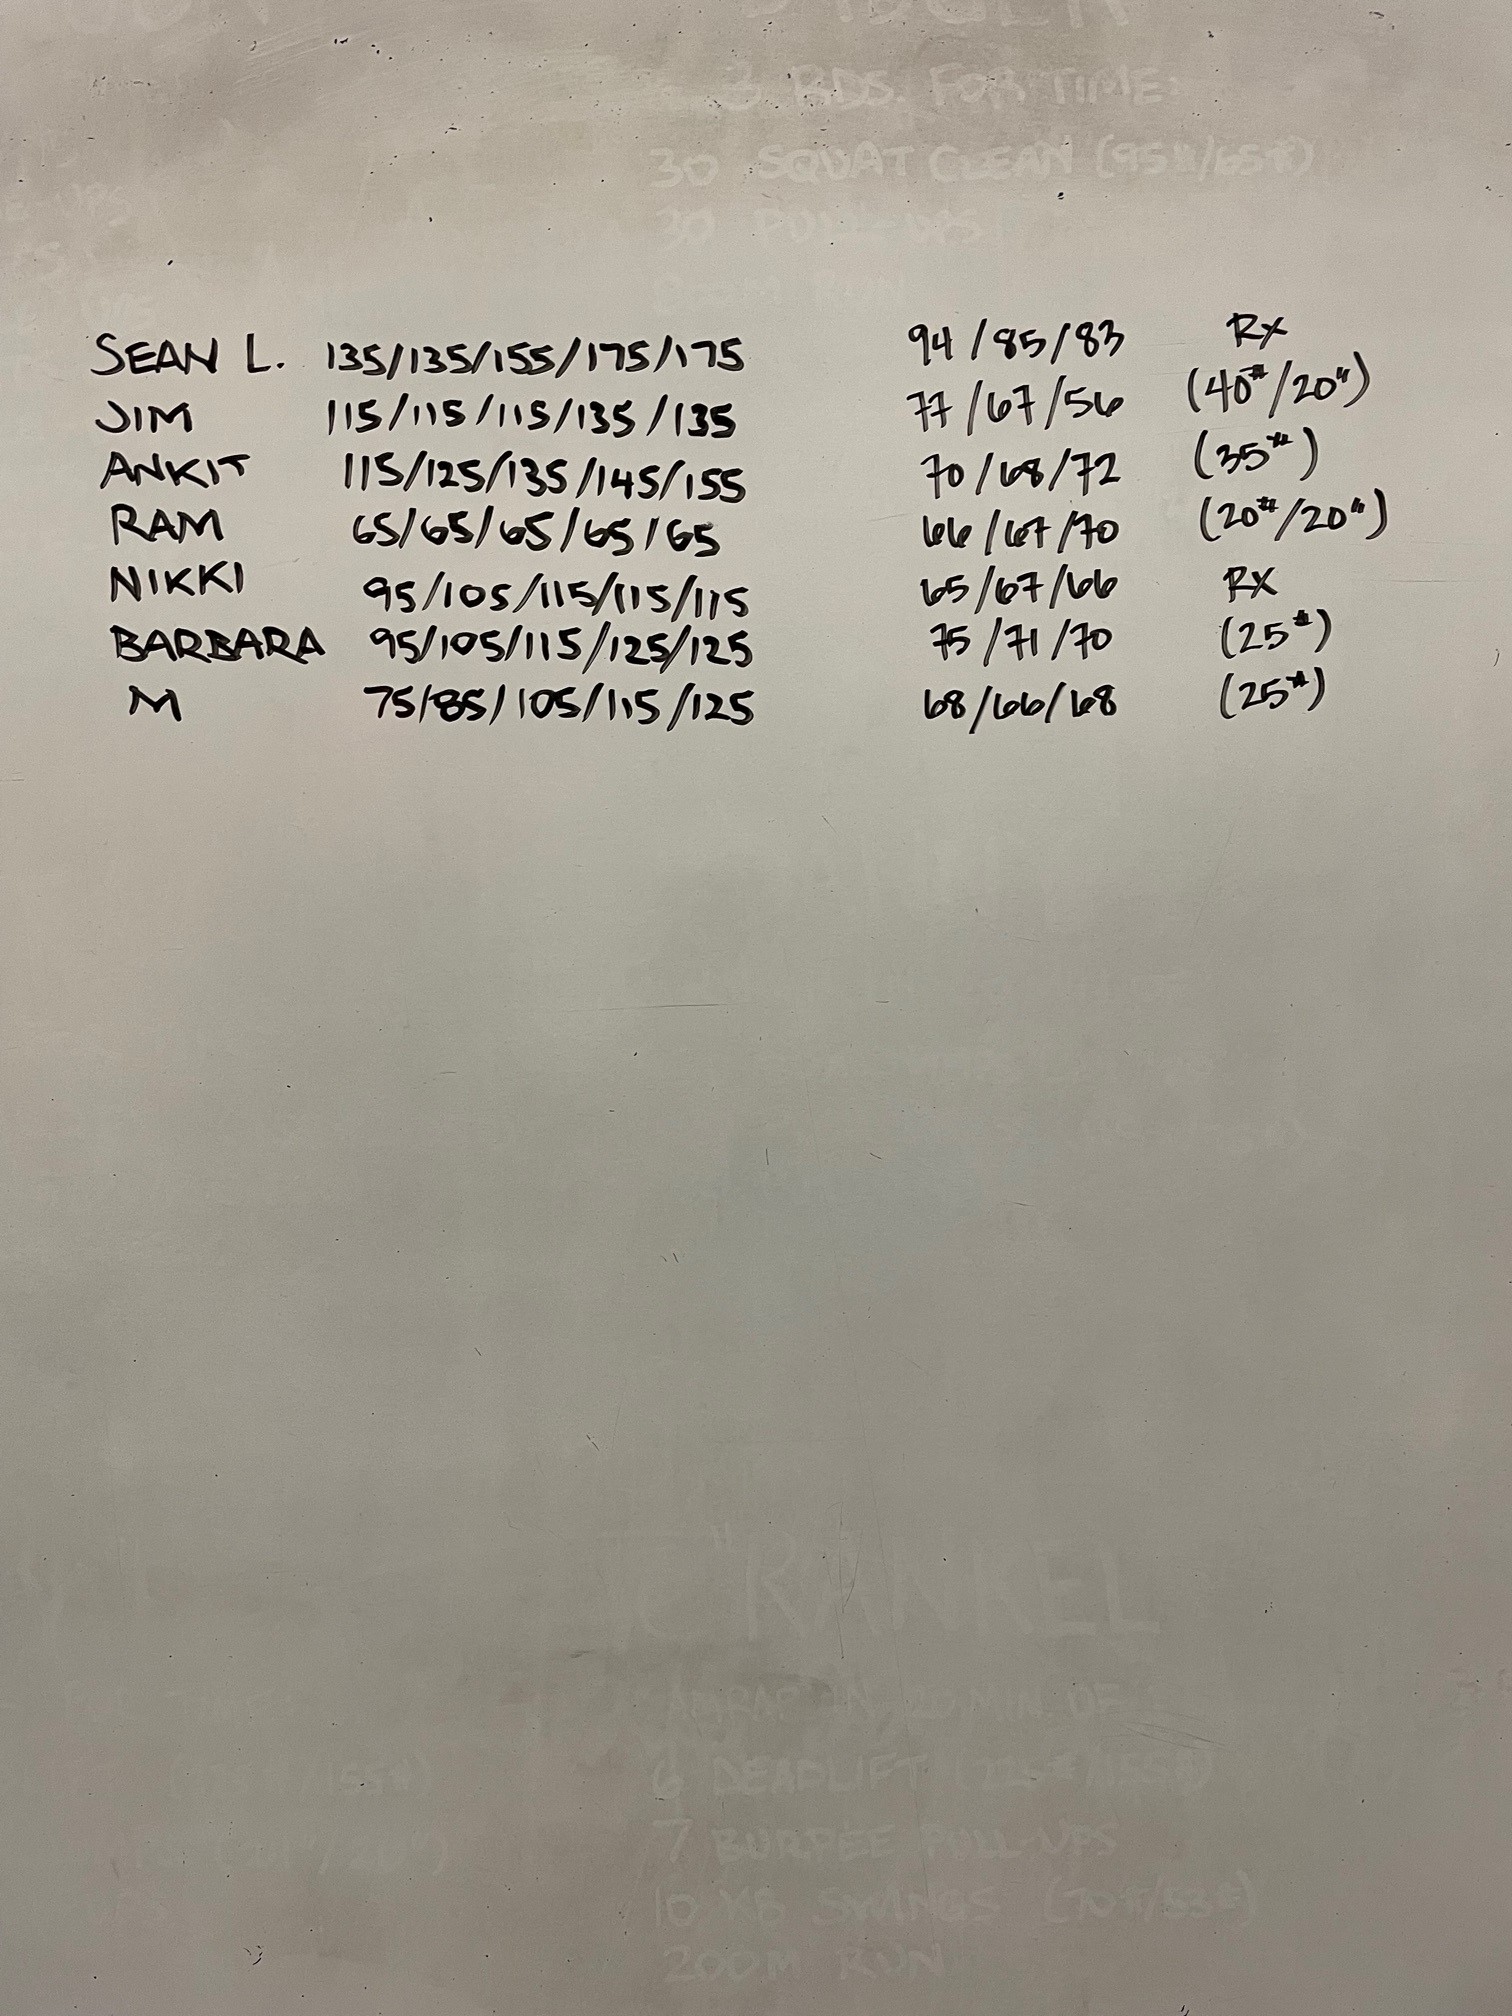 3 RDS. FOR TIME:
30 SQUAT CLEAN (95#/65#)
30 PULL-UPS
RUN
SEAN L. 135/135/155/175/175 94/85/83 Rx
JIM 115/115/115/135/135 77/67/56 (40#/20")
ANKIT 115/125/135/145/155 70/68/72 (35#)
RAM 65/65/65/65/65 66/67/70 (20#/20")
NIKKI 95/105/115/115/115 65/67/66 RX
BARBARA 95/105/115/125/125 75/71/70 (25#)
M 75/85/105/115/125 68/66/68 (25#)
"RANKEL
AMRAP IN 20 MIN. OF
6 DEADLIFT
7 BURPEE PULL-UPS
10 KB SWINGS (70#/53#)
200M RUN